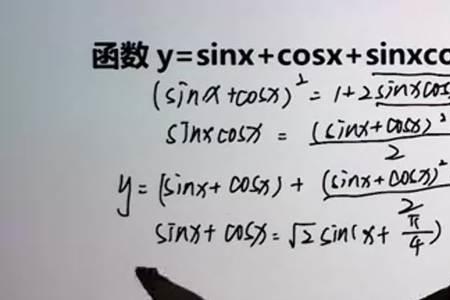 函数 y=sinx+cosx+sinxco
(sinx+cosx)²=1+2sinxcos
sinxcosx = (sinx+cosx)²/2
y=(sinx+cosx)+(sinx+cosx)²/2
sinx+cosx=√2sin(x+π/4)